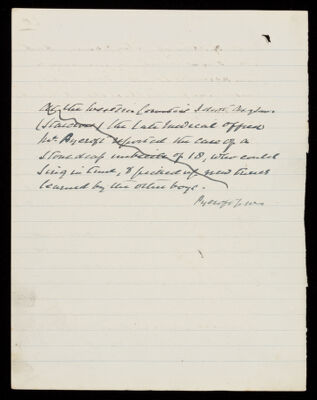 At the Western Counties Idiot Asylum
(Starcross) the late Medical Officer
Mr Pycroft reported the case of a
stone deaf imbecile of 18, who could
sing in tune, & picked up new tunes
learned by the other boys.